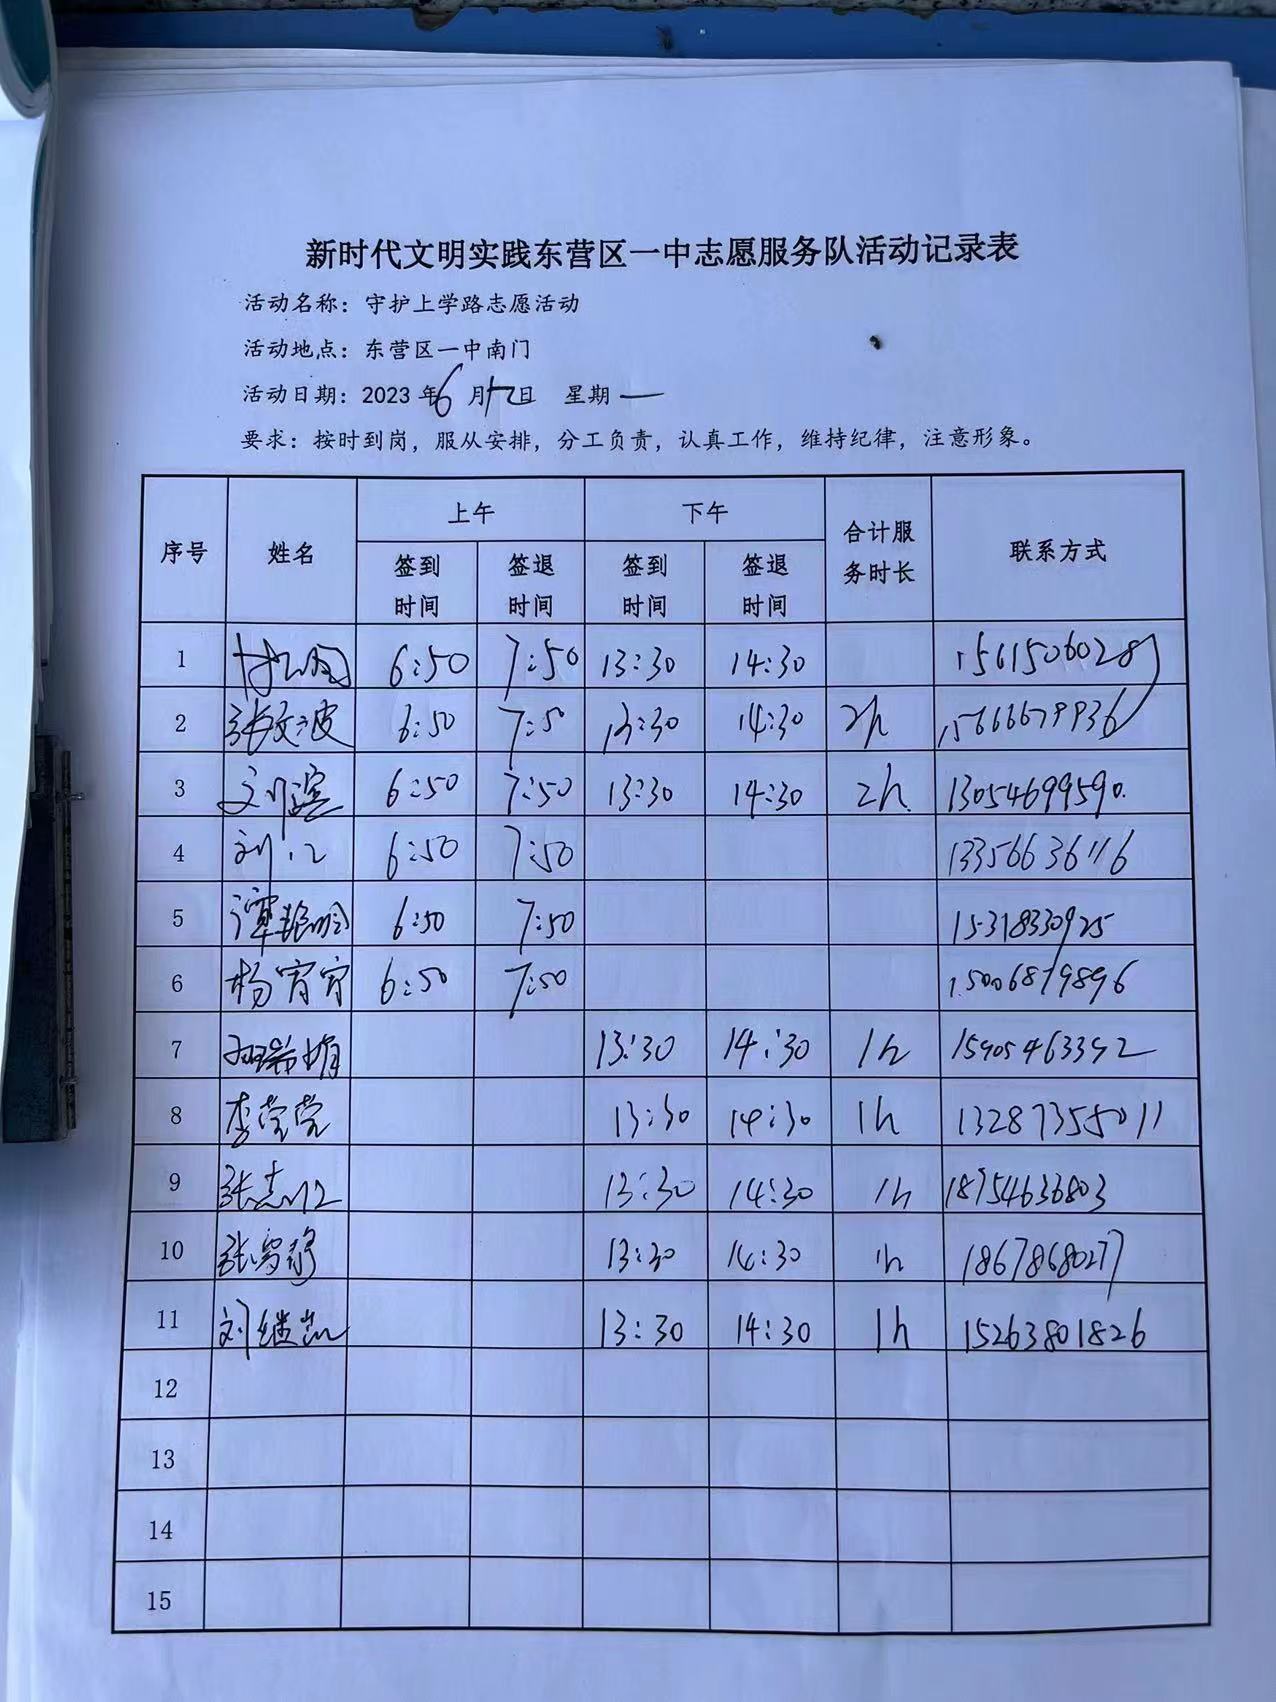 新时代文明实践东营区一中志愿服务队活动记录表
活动名称：守护上学路志愿活动
活动地点：东营区一中南门
活动日期：2023年6月 日 星期一
要求：按时到岗，服从安排，分工负责，认真工作，维持纪律，注意形象。
序号 姓名 上午 下午 合计服务时长 联系方式
签到时间 签退时间 签到时间 签退时间
1 6:50 7:50 13:30 14:30 15615060289
2 张文波 6:50 7:5 13:30 14:30 2h 15666679936
3 刘滨 6:50 7:50 13:30 14:30 2h 13054699590.
4 6:50 7:50 13356636116
5 6:50 7:50 15318330925
6 杨宵宵 6:50 7:50 15006879896
7 13:30 14:30 1h 15905463392
8 李莹莹 13:30 14:30 1h 13287355011
9 13:30 14:30 1h 18754636803
10 13:30 14:30 1h 18678680277
11 13:30 14:30 1h 15263801826
12
13
14
15